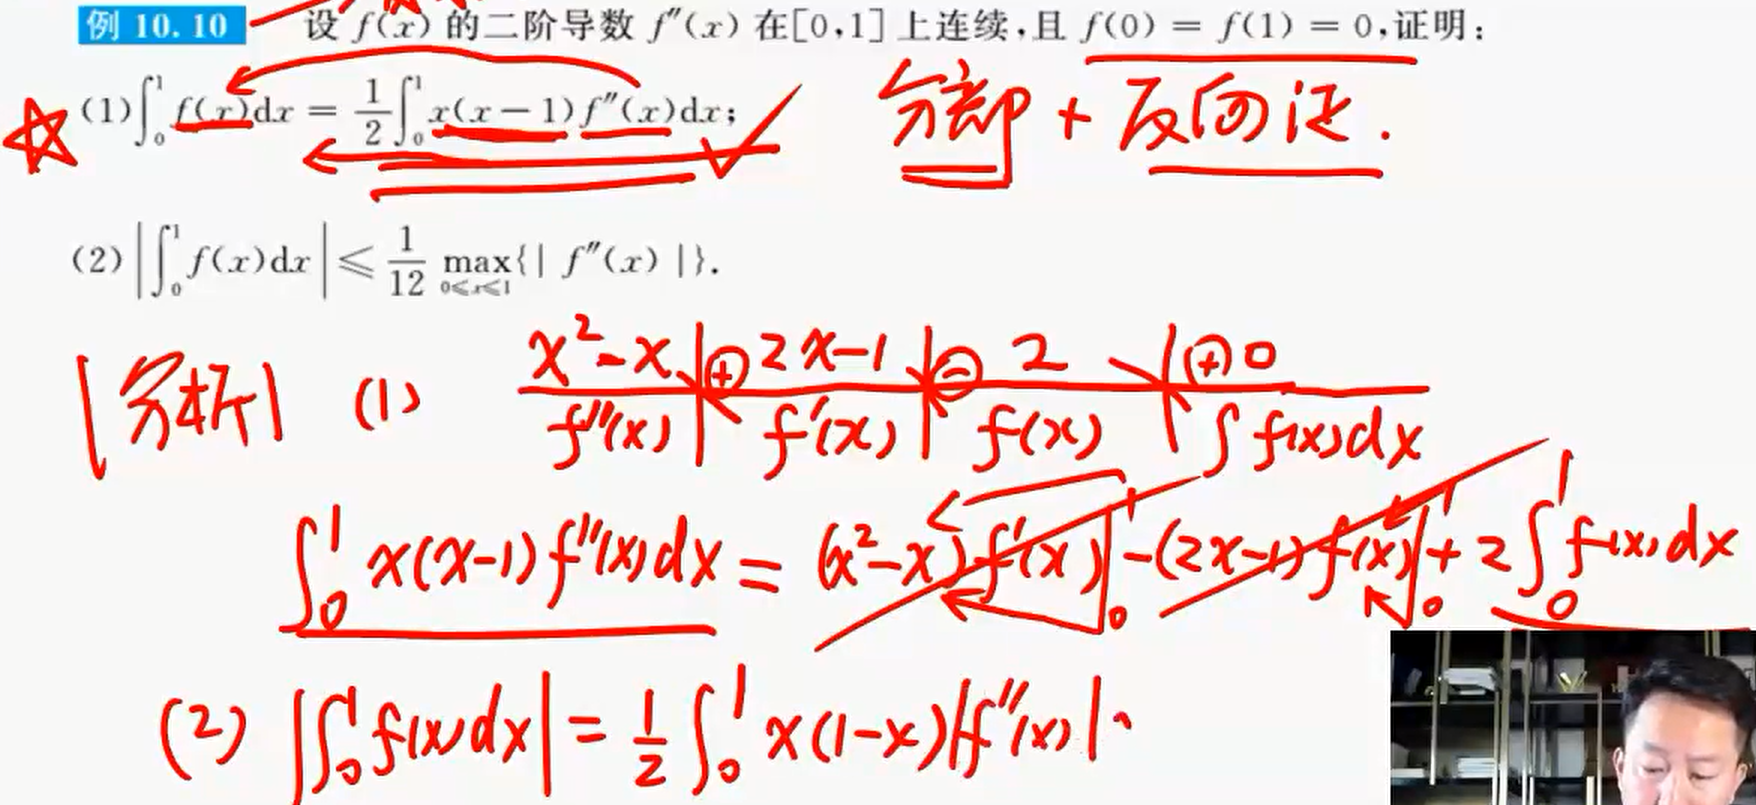 例 10.10 设 f(x) 的二阶导数 f″(x) 在[0,1]上连续,且 f(0) = f(1) = 0,证明:
(1)∫₀¹ f(x)dx = 1/2 ∫₀¹ x(x−1)f″(x)dx; 分部 + 反向证.
(2)|∫₀¹ f(x)dx| ⩽ 1/12 max_{0⩽x⩽1}{| f″(x) |}.
[分析] (1) x²-x ⊕ 2x-1 ⊖ 2 ⊕ 0
f″(x) f′(x) f(x) ∫f(x)dx
∫₀¹ x(x-1)f″(x)dx = (x²-x)f′(x)|₀¹ - (2x-1)f(x)|₀¹ + 2∫₀¹ f(x)dx
(2) |∫₀¹ f(x)dx| = 1/2 ∫₀¹ x(1-x)|f″(x)|